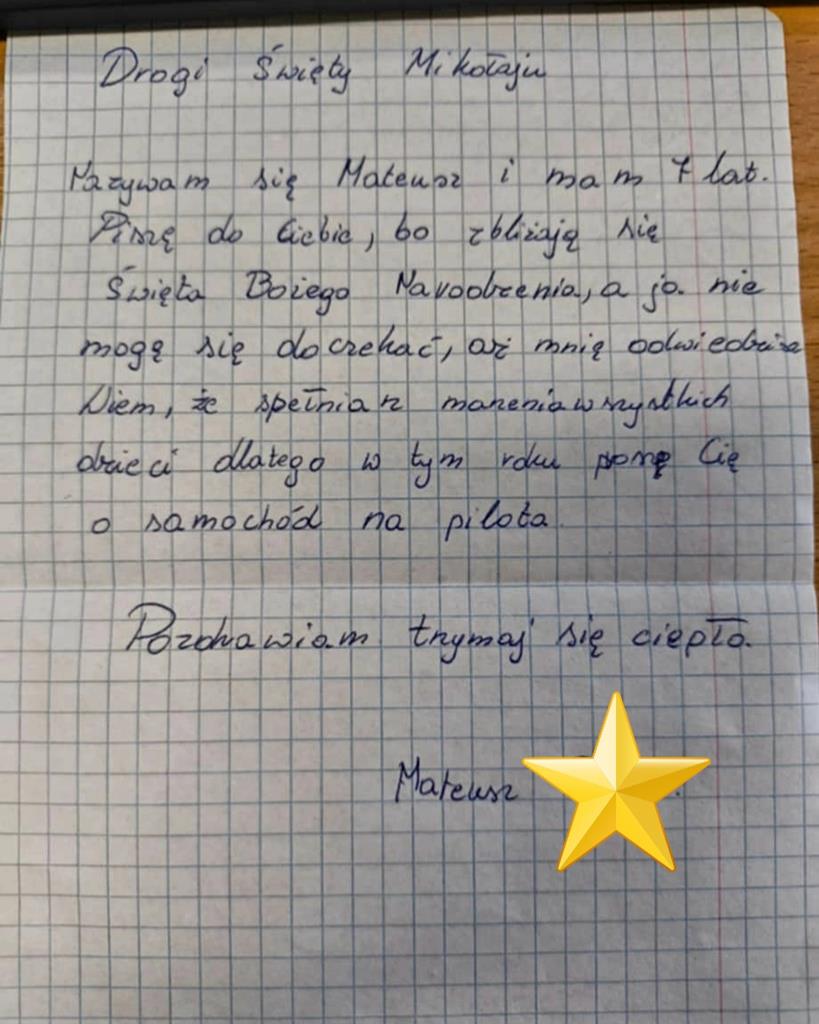 Drogi Święty Mikołaju
Nazywam się Mateusz i mam 7 lat.
Piszę do Ciebie, bo zbliżają się
Święta Bożego Narodzenia, a ja nie
mogę się doczekać, aż mnię odwiedzisz
Wiem, że spełniasz marzenia wszystkich
dzieci dlatego w tym roku proszę Cię
o samochód na pilota.
Pozdrawiam trzymaj się ciepło.
Mateusz